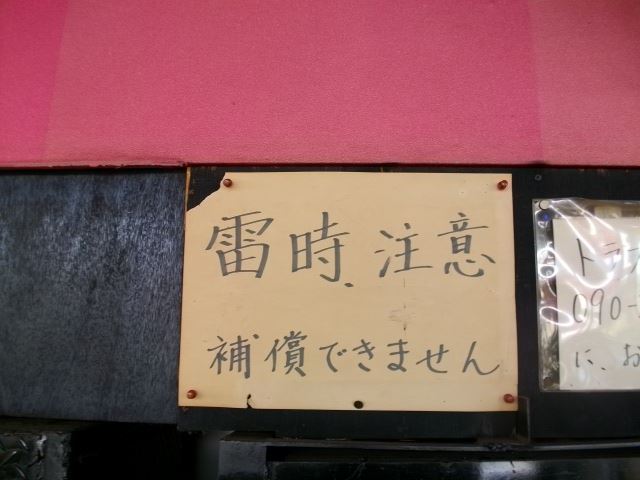 雷時、注意
補償できません
トラ
090-
に、お